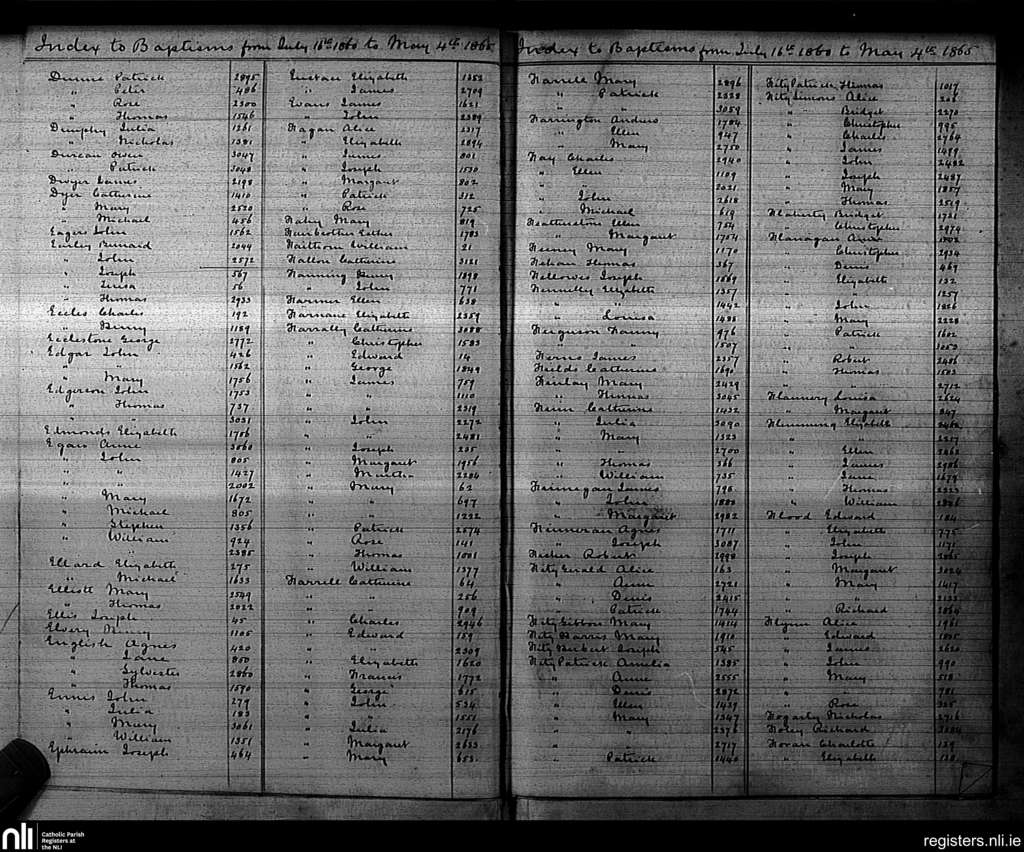 Index to Baptisms from July 16th 1860 to May 4th 1865
Dunne Patrick 2895
" Peter 486
" Rose 2300
" Thomas 1546
Dunphy Julia 1261
" Nicholas 1381
Duncan Owen 3047
" Patrick 3048
Dwyer James 2198
Dyer Catherine 1410
" Mary 2520
" Michael 456
Eagers John 1562
Earley Bernard 2049
" John 2572
" Joseph 567
" Teresa 56
" Thomas 2933
Eccles Charles 192
" Henry 1189
Ecclestone George 2772
Edgar John 426
" " 1562
" Mary 1756
Edgerson John 1753
" Thomas 737
" " 3031
Edmonds Elizabeth 1706
Egan Anne 3060
" John 805
" " 1427
" " 2002
" Mary 1672
" Michael 805
" Stephen 1356
" William 924
" " 2385
Ellard Elizabeth 275
" Michael 1633
Elliott Mary 2549
" Thomas 2022
Ellis Joseph 45
Elvery Henry 1105
English Agnes 420
" Jane 850
" Sylvester 2860
" Thomas 1570
Ennis John 279
" Julia 183
" Mary 3061
" William 1351
Ephraim Joseph 464
Eustace Elizabeth 1352
" James 2709
Evans James 1621
" John 2389
Fagan Alice 2317
" Elizabeth 2894
" James 801
" Joseph 1530
" Margaret 802
" Patrick 312
" Rose 725
Fahy Mary 819
Fairbrother Esther 1783
Faithorn William 21
Fallon Catherine 3121
Fanning Henry 1898
" John 771
Farmer Ellen 638
Farnane Elizabeth 2359
Farrally Catherine 3088
" Christopher 1583
" Edward 14
" George 1849
" James 759
" " 1110
" " 2319
" John 2272
" " 2481
" Joseph 235
" Margaret 1956
" Martha 2284
" Mary 62
" " 697
" " 1222
" Patrick 2574
" Rose 141
" Thomas 1001
" William 1377
Farrell Catherine 64
" " 256
" " 909
" Charles 2946
" Edward 159
" " 2309
" Elizabeth 1620
" Francis 1772
" George 615
" John 534
" " 1551
" Julia 2176
" Margaret 2633
" Mary 653
Index to Baptisms from July 16th 1860 to May 4th 1865
Farrell Mary 2896
" Patrick 2328
" " 3059
Farrington Andrew 1784
" Ellen 947
" Mary 2750
Fay Charles 2940
" Ellen 1109
" " 2021
" John 2618
" Michael 619
Feathersone Ellen 754
" Margaret 1754
Feeney Mary 1170
Feehan Thomas 367
Fellowes Joseph 1069
Fennelly Elizabeth 1357
" " 1442
" Louisa 1438
Ferguson Fanny 976
" " 1507
Ferns James 2357
Fields Catherine 1690
Finlay Mary 2429
" Thomas 3045
Finn Catherine 1432
" Julia 3090
" Mary 1323
" " 2700
" Thomas 366
" William 735
Finnegan James 798
" John 1880
" Margaret 2982
Finneran Agnes 1711
" Joseph 3087
Fisher Robert 2998
FitzGerald Alice 163
" Anne 2721
" Denis 2415
" Patrick 1744
FitzGibbon Mary 1414
FitzHarris Mary 1910
FitzHerbert Joseph 545
FitzPatrick Amelia 1385
" Anne 2555
" Denis 2872
" Ellen 1429
" Mary 1347
" " 2376
" " 2717
" Patrick 1440
FitzPatrick Thomas 1017
FitzSimons Alice
" Bridget 2270
" Christopher 995
" Charles 2764
" James 1499
" John 2482
" Joseph 2487
" Mary 1857
" Thomas 2519
Flaherty Bridget 1721
" Christopher 2974
Flanagan Anne
" Christopher 2934
" Denis 469
" Elizabeth 132
" " 1257
" John
" Mary 2228
" Patrick 1602
" " 1053
" Robert 2486
" Thomas 1503
" " 2712
Flannery Louisa 2624
" Margaret 847
Flemming Elizabeth
" " 2257
" Ellen
" James 2956
" Jane 1679
" Thomas 2323
" William
Flood Edward 184
" Elizabeth 775
" John 1171
" Joseph
" Margaret 3024
" Mary 1417
" " 2133
" Richard
Flynn Alice 1961
" Edward
" James 2620
" John 990
" Mary 518
" " 781
" Rose 325
Fogarty Nicholas 2716
Foley Richard
Foran Charlotte 129
" Elizabeth 130
nli
Catholic Parish
Registers at
the NLI
registers.nli.ie